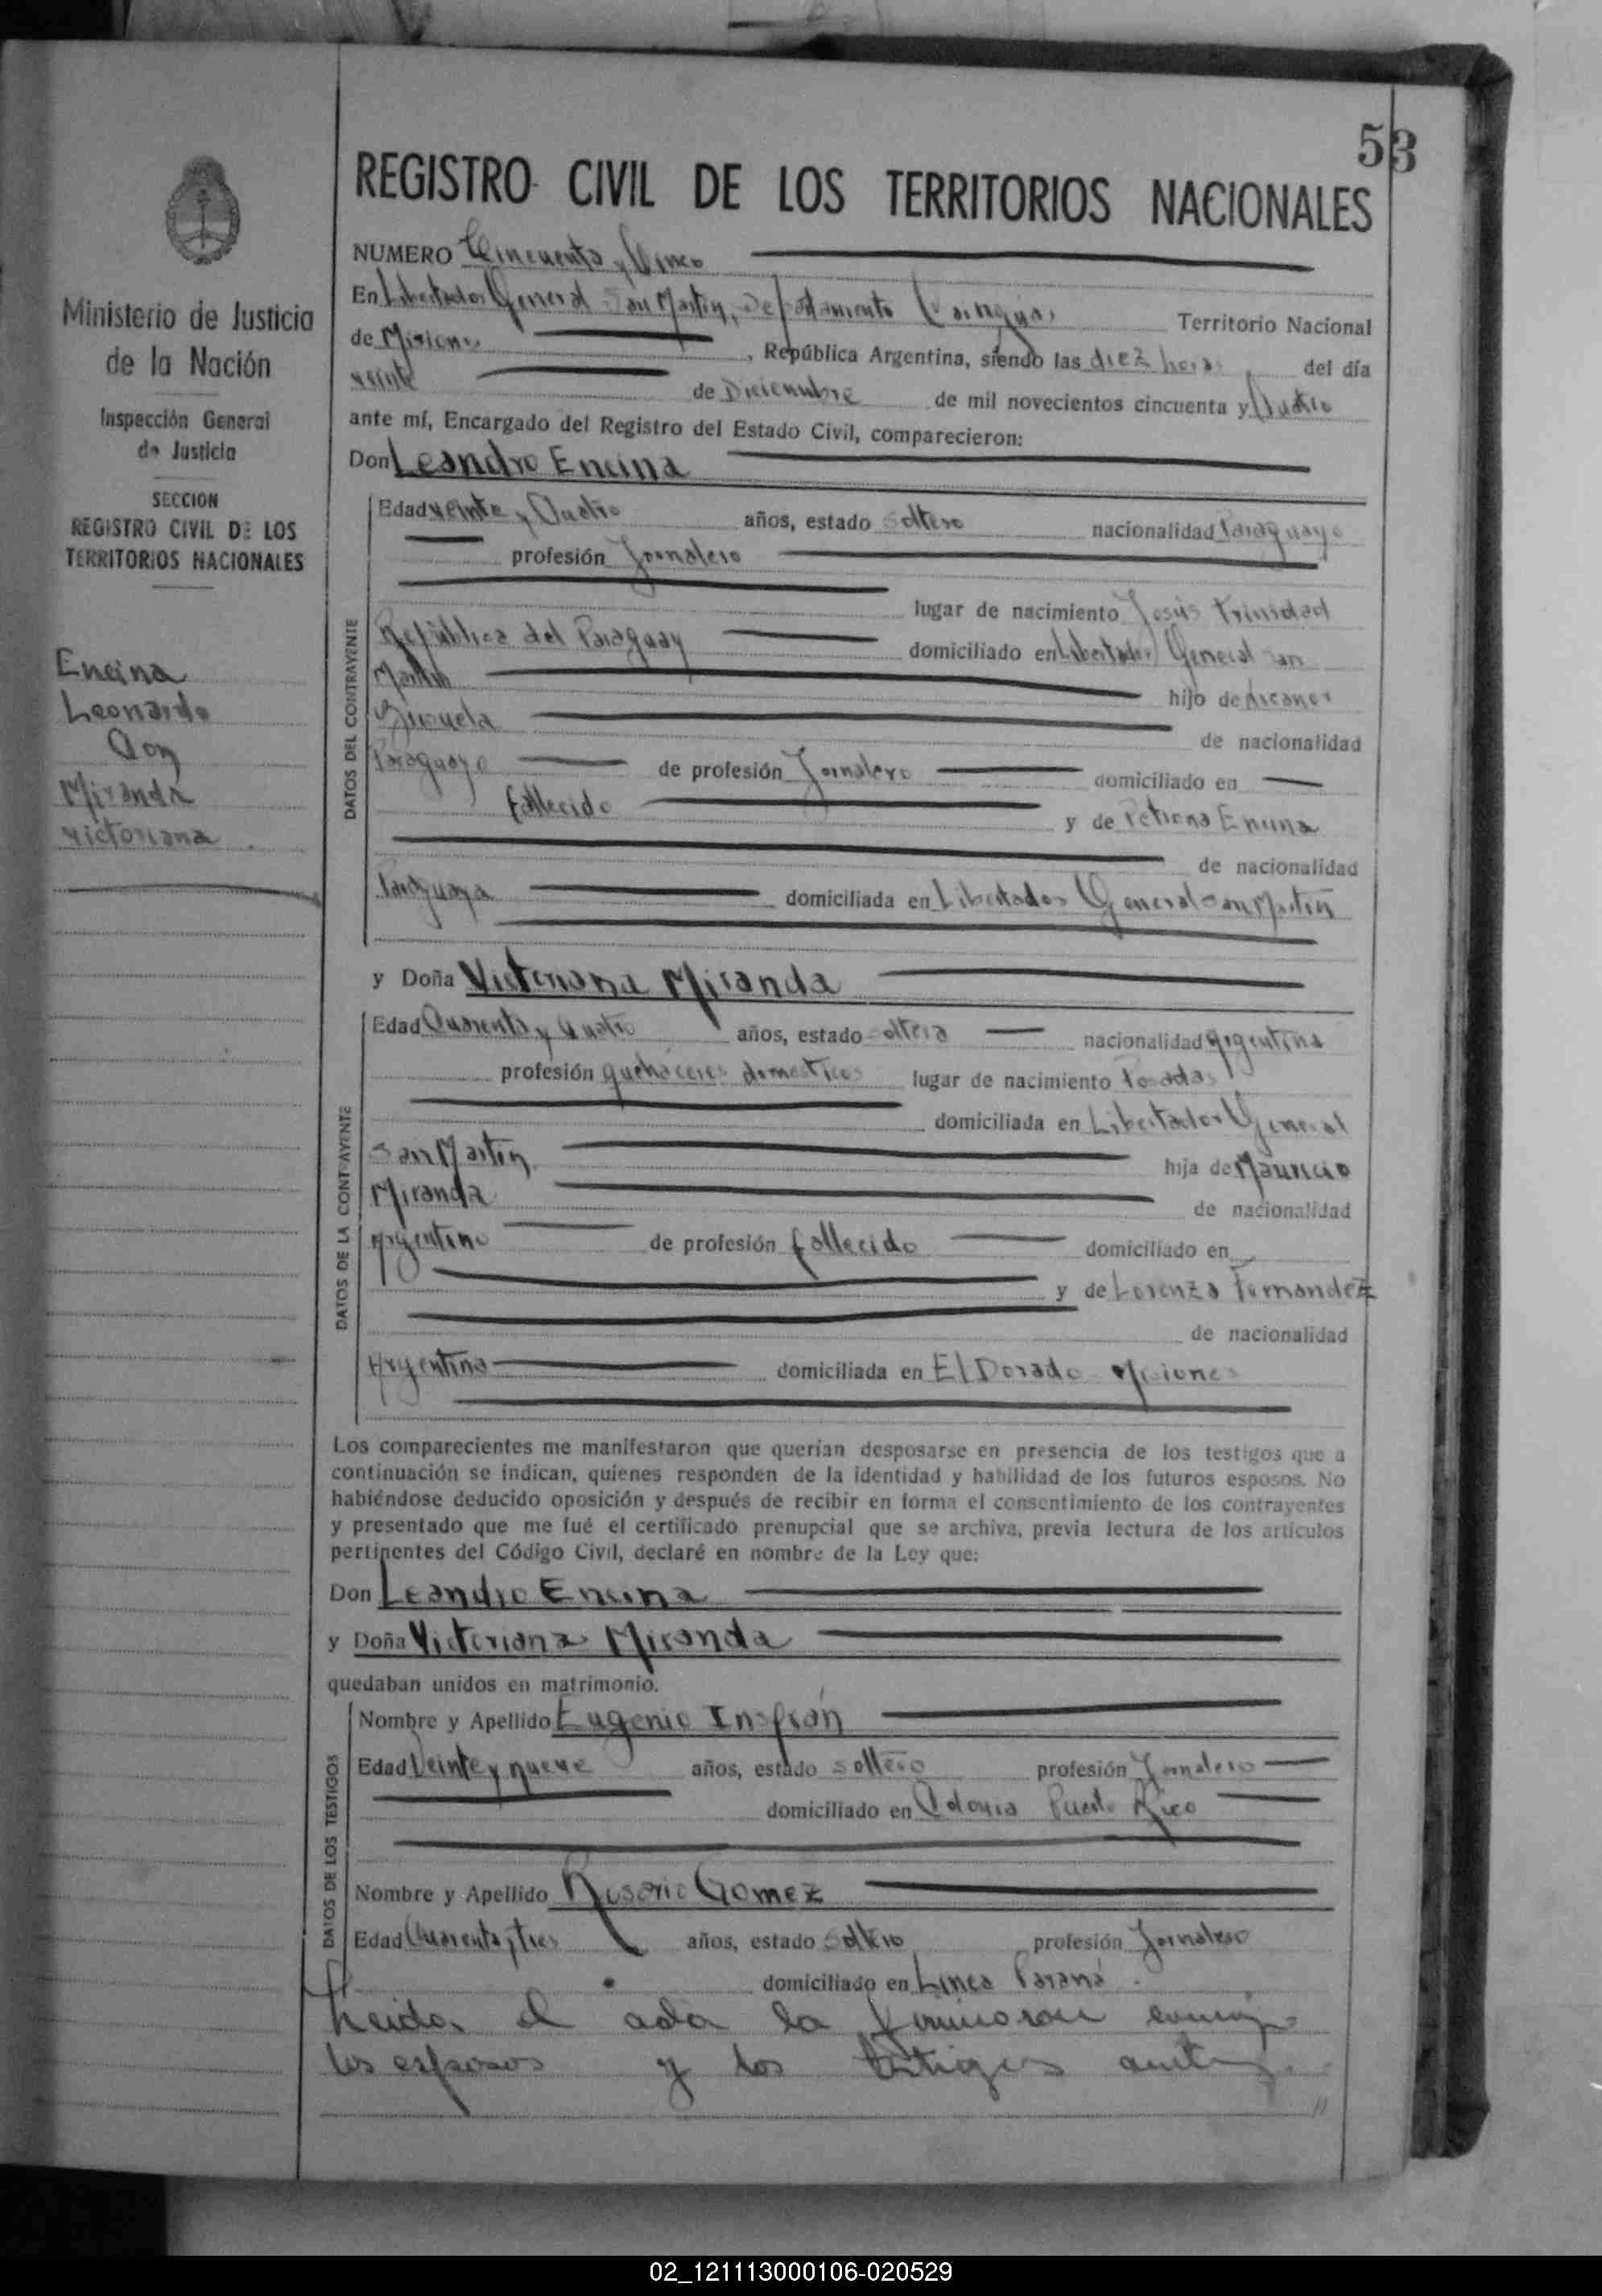 53
REGISTRO CIVIL DE LOS TERRITORIOS NACIONALES
Ministerio de Justicia
de la Nación
Inspección General
de Justicia
SECCION
REGISTRO CIVIL DE LOS
TERRITORIOS NACIONALES
Encina
Leonardo
Con
Miranda
victoriana.
NUMERO Cincuenta y Cinco
En Libertador General San Martin, Departamento Territorio Nacional
de Misiones, República Argentina, siendo las diez horas, del día
veinte de Diciembre de mil novecientos cincuenta y Cuatro
ante mí, Encargado del Registro del Estado Civil, comparecieron:
Don Leandro Encina
DATOS DEL CONTRAYENTE
Edad veinte y Cuatro años, estado soltero nacionalidad Paraguayo
profesión Jornalero
lugar de nacimiento Jesús Trinidad
República del Paraguay domiciliado en Libertador General San
Martin hijo de Nicanor
de nacionalidad
Paraguayo de profesión Jornalero domiciliado en
fallecido y de Petrona Encina
de nacionalidad
Paraguaya domiciliada en Libertador General San Martin
y Doña Victoriana Miranda
DATOS DE LA CONTRAYENTE
Edad Cuarenta y Cuatro años, estado soltera nacionalidad Argentina
profesión quehaceres domesticos lugar de nacimiento Posadas
domiciliada en Libertador General
San Martin hija de Mauricio
Miranda de nacionalidad
Argentino de profesión fallecido domiciliado en
y de Lorenza Fernandez
de nacionalidad
Argentina domiciliada en El Dorado - Misiones
Los comparecientes me manifestaron que querían desposarse en presencia de los testigos que a
continuación se indican, quienes responden de la identidad y habilidad de los futuros esposos. No
habiéndose deducido oposición y después de recibir en forma el consentimiento de los contrayentes
y presentado que me fué el certificado prenupcial que se archiva, previa lectura de los artículos
pertinentes del Código Civil, declaré en nombre de la Ley que:
Don Leandro Encina
y Doña Victoriana Miranda
quedaban unidos en matrimonio.
DATOS DE LOS TESTIGOS
Nombre y Apellido Eugenio Insfrán
Edad Veinte y nueve años, estado soltero profesión Jornalero
domiciliado en Colonia Puerto Rico
Nombre y Apellido Rosario Gomez
Edad Cuarenta y tres años, estado soltero profesión Jornalero
domiciliado en Linea Paraná.
Leida el acta la firmaron conmigo
los esposos y los testigos
02_121113000106-020529